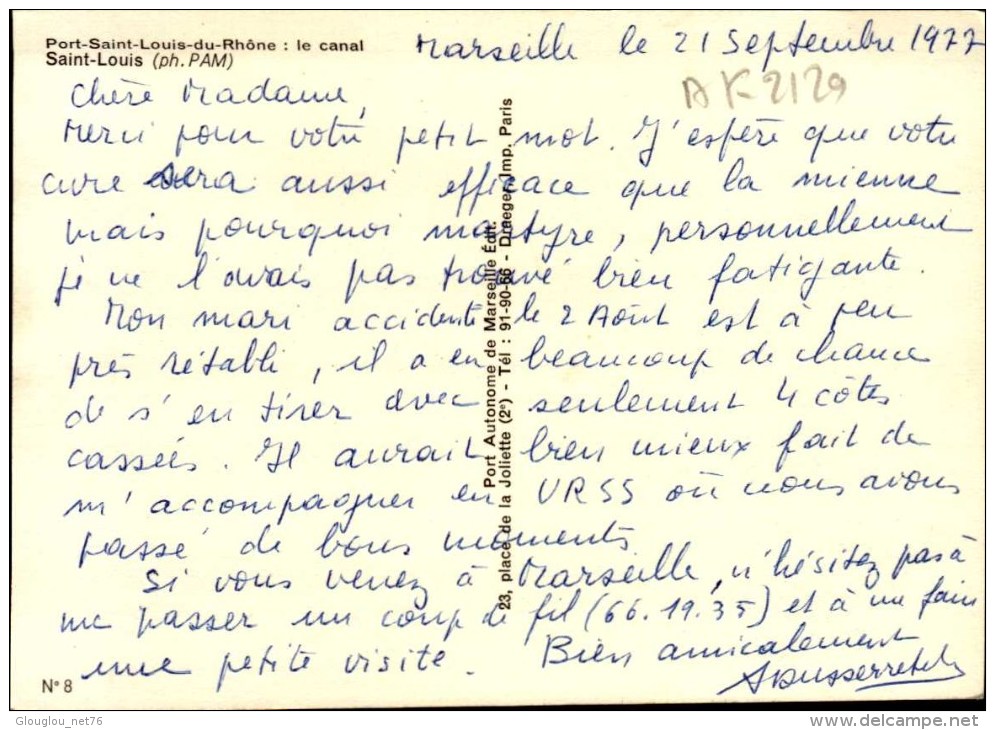 Port-Saint-Louis-du-Rhône : le canal
Saint-Louis (ph. PAM)
Marseille le 21 Septembre 1977
AK 2129
Chère Madame,
Merci pour votre petit mot. J'espère que votre
cure sera aussi efficace que la mienne
mais pourquoi martyre, personnellement
je ne l'avais pas trouvé bien fatigante.
Mon mari accidenté le 2 Août est à peu
près rétabli, il a eu beaucoup de chance
de s'en tirer avec seulement 4 côtes
cassées. Il aurait bien mieux fait de
m'accompagner en URSS où nous avons
passé de bons moments
Si vous venez à Marseille, n'hésitez pas à
me passer un coup de fil (66.19.35) et à me faire
une petite visite. Bien amicalement
Port Autonome de Marseille Édit.
23, place de la Joliette (2e) - Tél : 91-90-66 - Draeger, Imp. Paris
N° 8
Glouglou_net76
delcampe.net